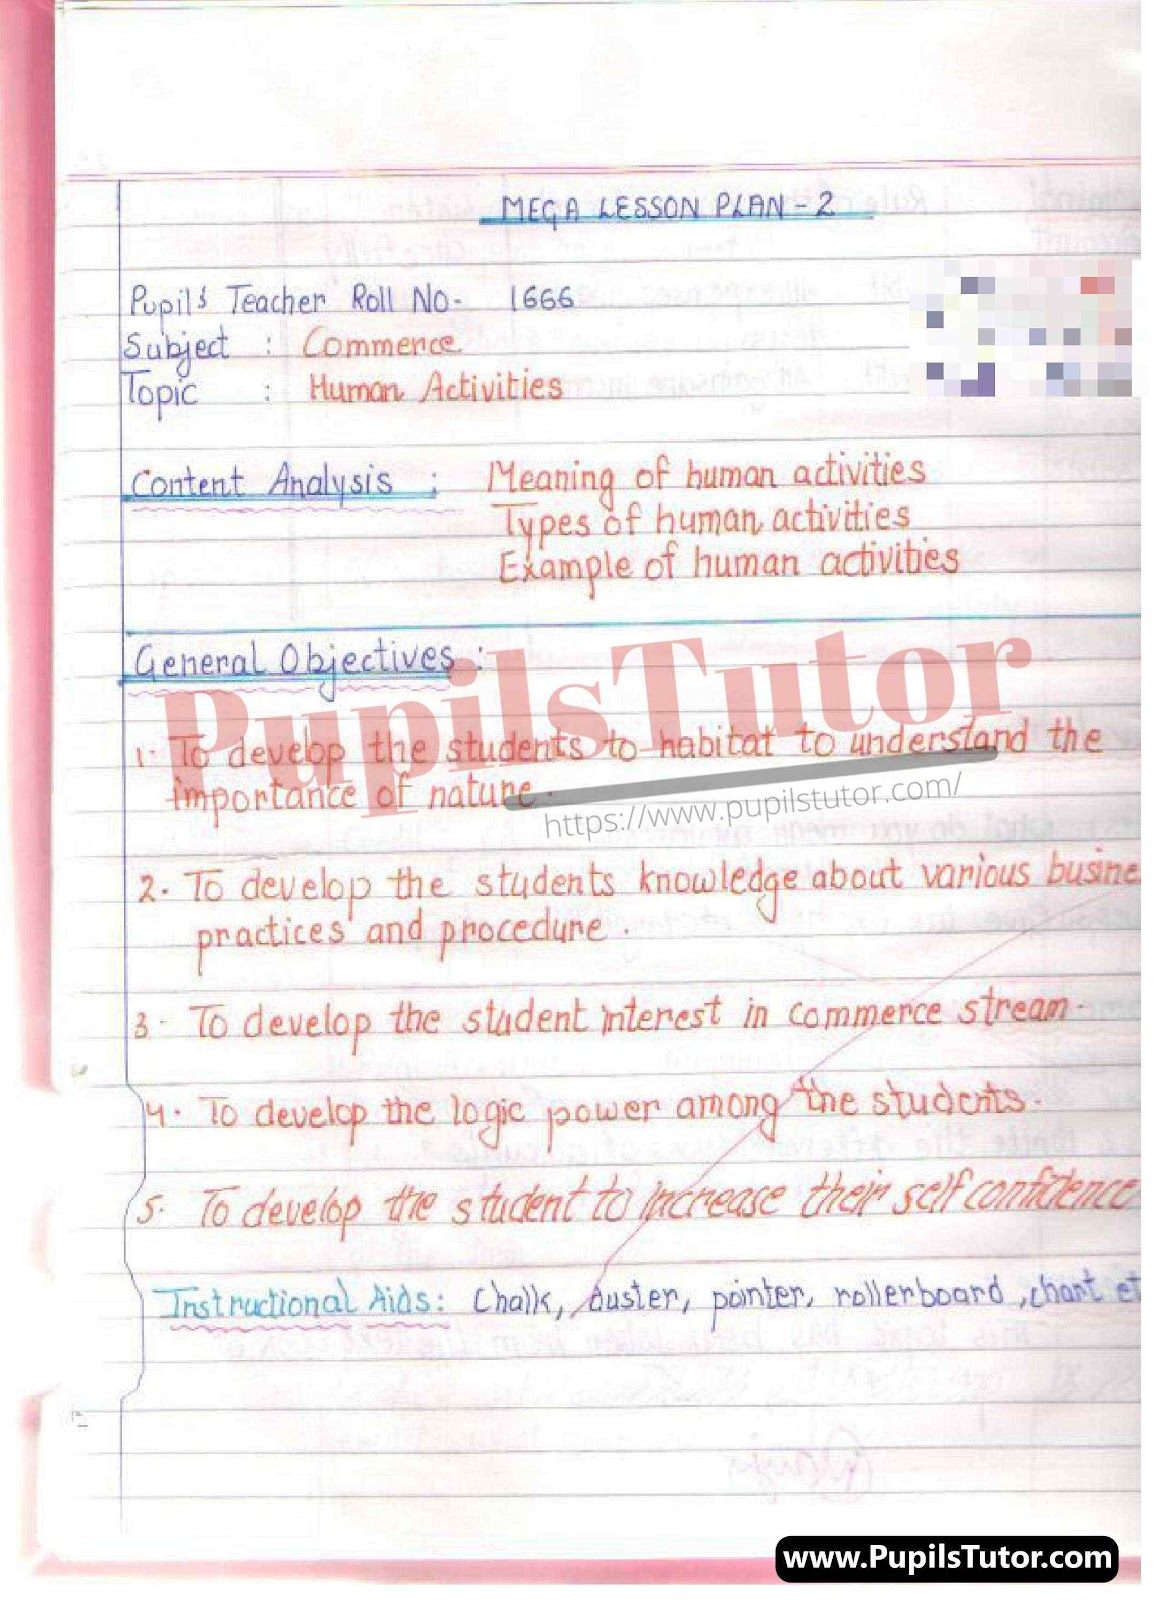 MEGA LESSON PLAN - 2
Pupil's Teacher Roll No- 1666
Subject : Commerce
Topic : Human Activities
Content Analysis : Meaning of human activities
Types of human activities
Example of human activities
General Objectives :
PupilsTutor
1. To develop the students to habitat to understand the
importance of nature.
https://www.pupilstutor.com/
2. To develop the students knowledge about various busine
practices and procedure.
3. To develop the student interest in commerce stream.
4. To develop the logic power among the students.
5. To develop the student to increase their self confidence
Instructional Aids: Chalk, duster, pointer, rollerboard, chart et
www.PupilsTutor.com